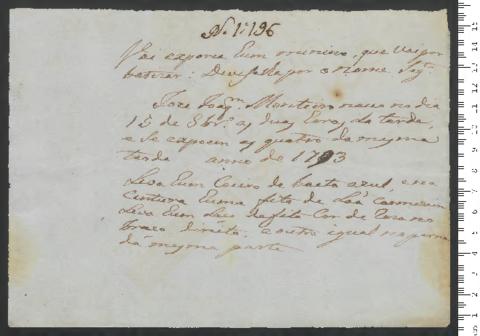 N. 1:196
Vai exporce Eum minino, que Vai por
batizar: Deve se lhe por o nome Seg.te
Joze Joaq.m Monteiro naceu no dia
15 de 8br.o as duas Eoras da tarde,
e se expoem as quatro da mesma
tarde anno de 1793
Leva Eum Coeiro de baeta azul, e na
Cintura Euma fita de Laã Carmezim
Leva Eum Laço de fita Cor de Roza no
braço direito, e outro igual na perna
da mesma parte